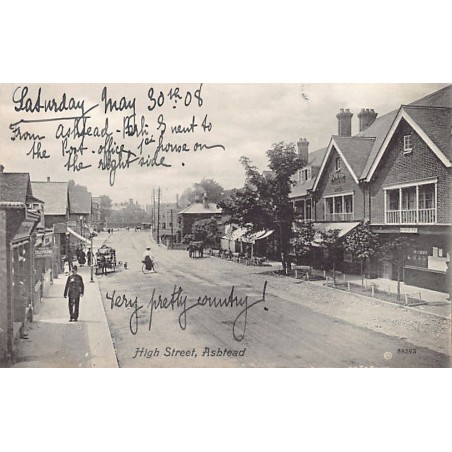 Saturday May 30th 08
From Ashtead I went to
the Post-office 1st house on
the right side.
Very pretty country!
High Street, Ashtead